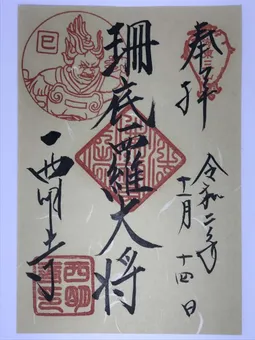 奉拝
令和二年
十一月十四日
珊底羅大将
巳
西明寺
西明